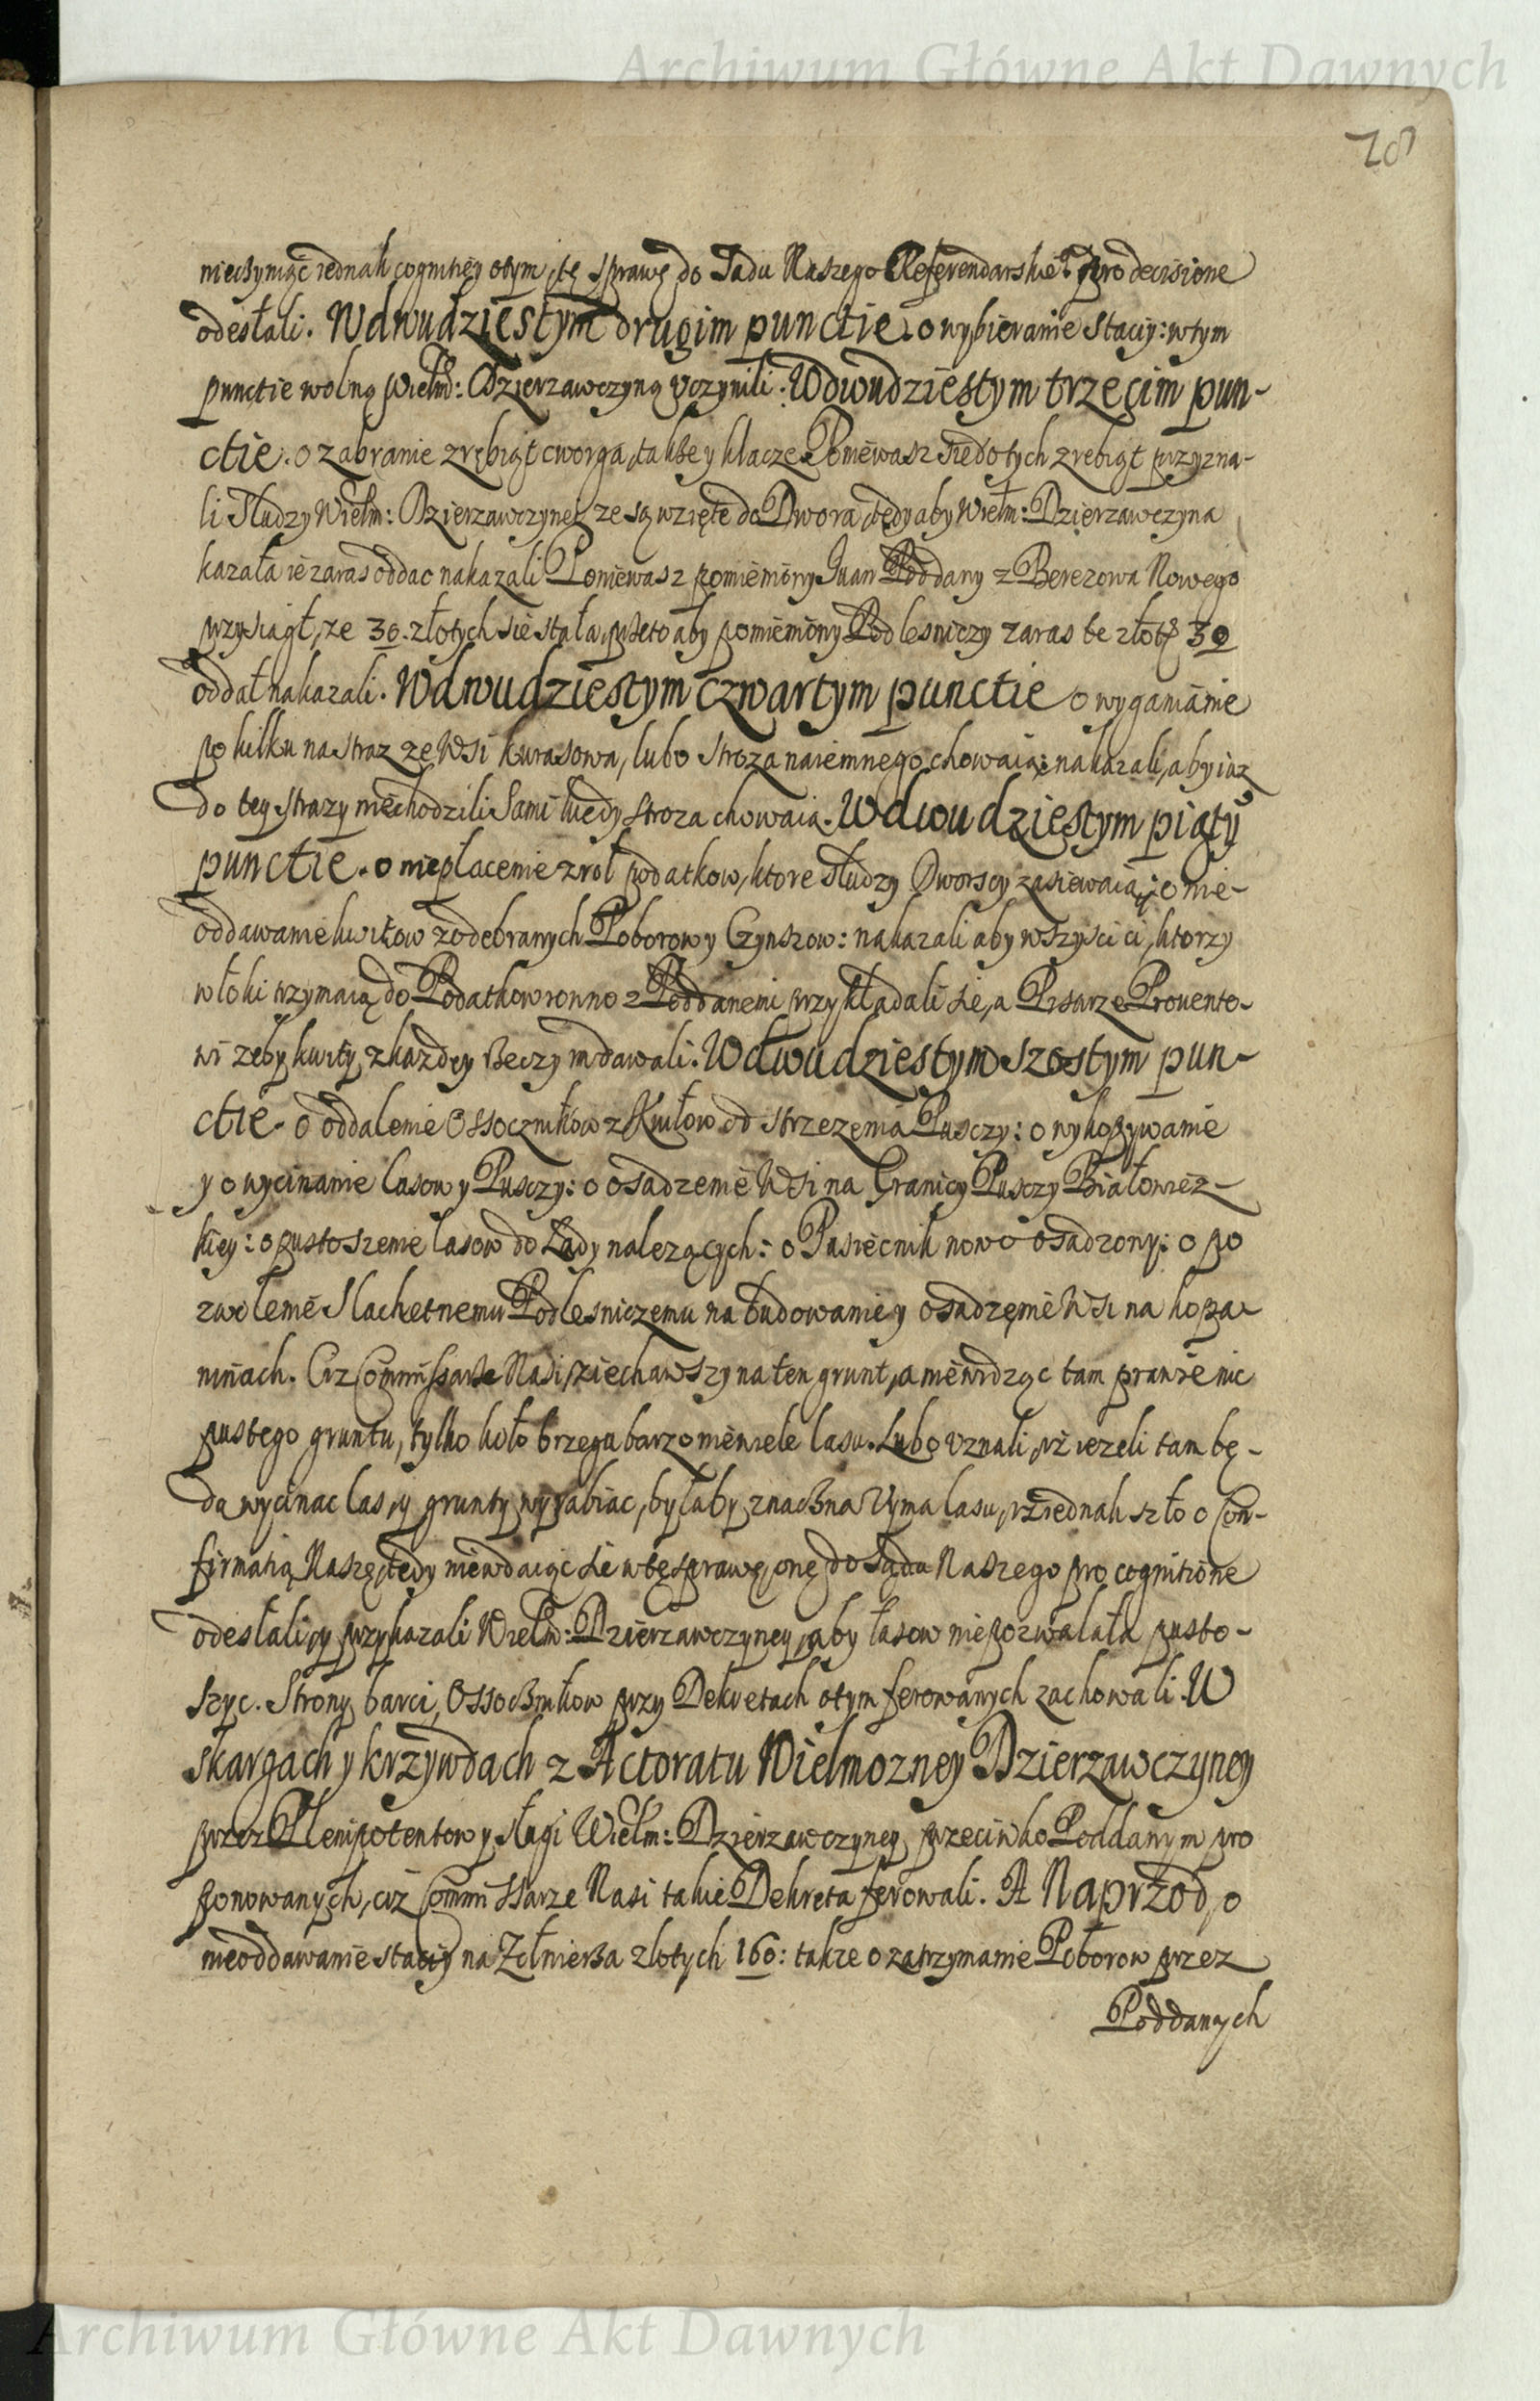 Archiwum Główne Akt Dawnych
28
nieczyniąc iednak cognitiey otym, tę sprawę do Sadu Naszego Referendarskieº pro decisione
odesłali. W dwudziestym drugim punctie. o wybieranie Staciy: w tym
punctie wolną Wielm: Dzierzawczyną vczynili. W dwudziestym trzecim pun-
ctie. o zabranie zrębiąt czworga, takze y klacze. Poniewasz sie do tych zrebiąt przyzna-
li Słudzy Wielm: Dzierzawczyney ze są wzięte do Dwora, tedy aby Wielm: Dzierzawczyna
kazała ie zaras oddac nakazali. Poniewasz pomieniony Iuan Poddany z Berezowa Nowego
przysiągł, ze 30. złotych sie stała, przeto aby pomieniony Podlesniczy zaras te złotych 30
oddał nakazali. W dwudziestym czwartym punctie o wyganianie
po kilku na straz ze Wsi Kurasowa, lubo stroza naiemnego chowaią: nakazali, aby iuz
do tey strazy niechodzili Sami kiedy stroza chowaia. W dwudziestym piąty
punctie. o nieplacenie z rol podatkow, ktore słudzy Dworscy zasiewaią: o nie-
oddawanie kwitow z odebranych Poborow y Czynszow: nakazali aby wszyscy ci, ktorzy
włoki trzymaią do Podatkow rowno z Poddanemi przykładali sie, a Pisarze Prouento-
wi zeby kwity z kazdey Rzeczy im dawali. W dwudziestym szostym pun-
ctie. o oddalenie Ossocznikow z Kiwłow od strzezenia Pusczy: o wykopywanie
y o wycinanie lasow y Pusczy: o osadzenie Wsi na Granicy Pusczy Białowiez-
kiey: o pustoszenie lasow do Łady nalezących: o Pasiecnik nowo osadzony: o po
zwolenie Slachetnemu Podlesniczemu na budowanie y osadzenie Wsi na kopa-
ninach. Ciz Commissarze Nasi ziechawszy na ten grunt, a niewidząc tam prawie nic
pustego gruntu, tylko koło brzegu barzo niewiele lasu. Lubo vznali, iż iezeli tam bę-
da wycinac las, y grunty wyrabiac, byłaby znaczna Vyma lasu, iz iednak szło o Con-
firmatią Naszę, tedy niewdaiąc sie w tę sprawę, onę do Sądu Naszego pro cognitione
odesłali, y przykazali Wielm: Dzierzawczyney, aby lasow niepozwalała pusto-
szyc. Strony barci, Ossocznikow przy Dekretach otym ferowanych zachowali. W
skargach y krzywdach z Actoratu Wielmozney Dzierzawczyney
przez Plenipotentow y sługi Wielm: Dzierzawczyney, przeciwko Poddanym pro
ponowanych, ciż Commissarze Nasi takie Dekreta ferowali. A Naprzod, o
nieoddawanie staciy na Zołnierza złotych 160: takze o zatrzymanie Poborow przez
Poddanych
Archiwum Główne Akt Dawnych